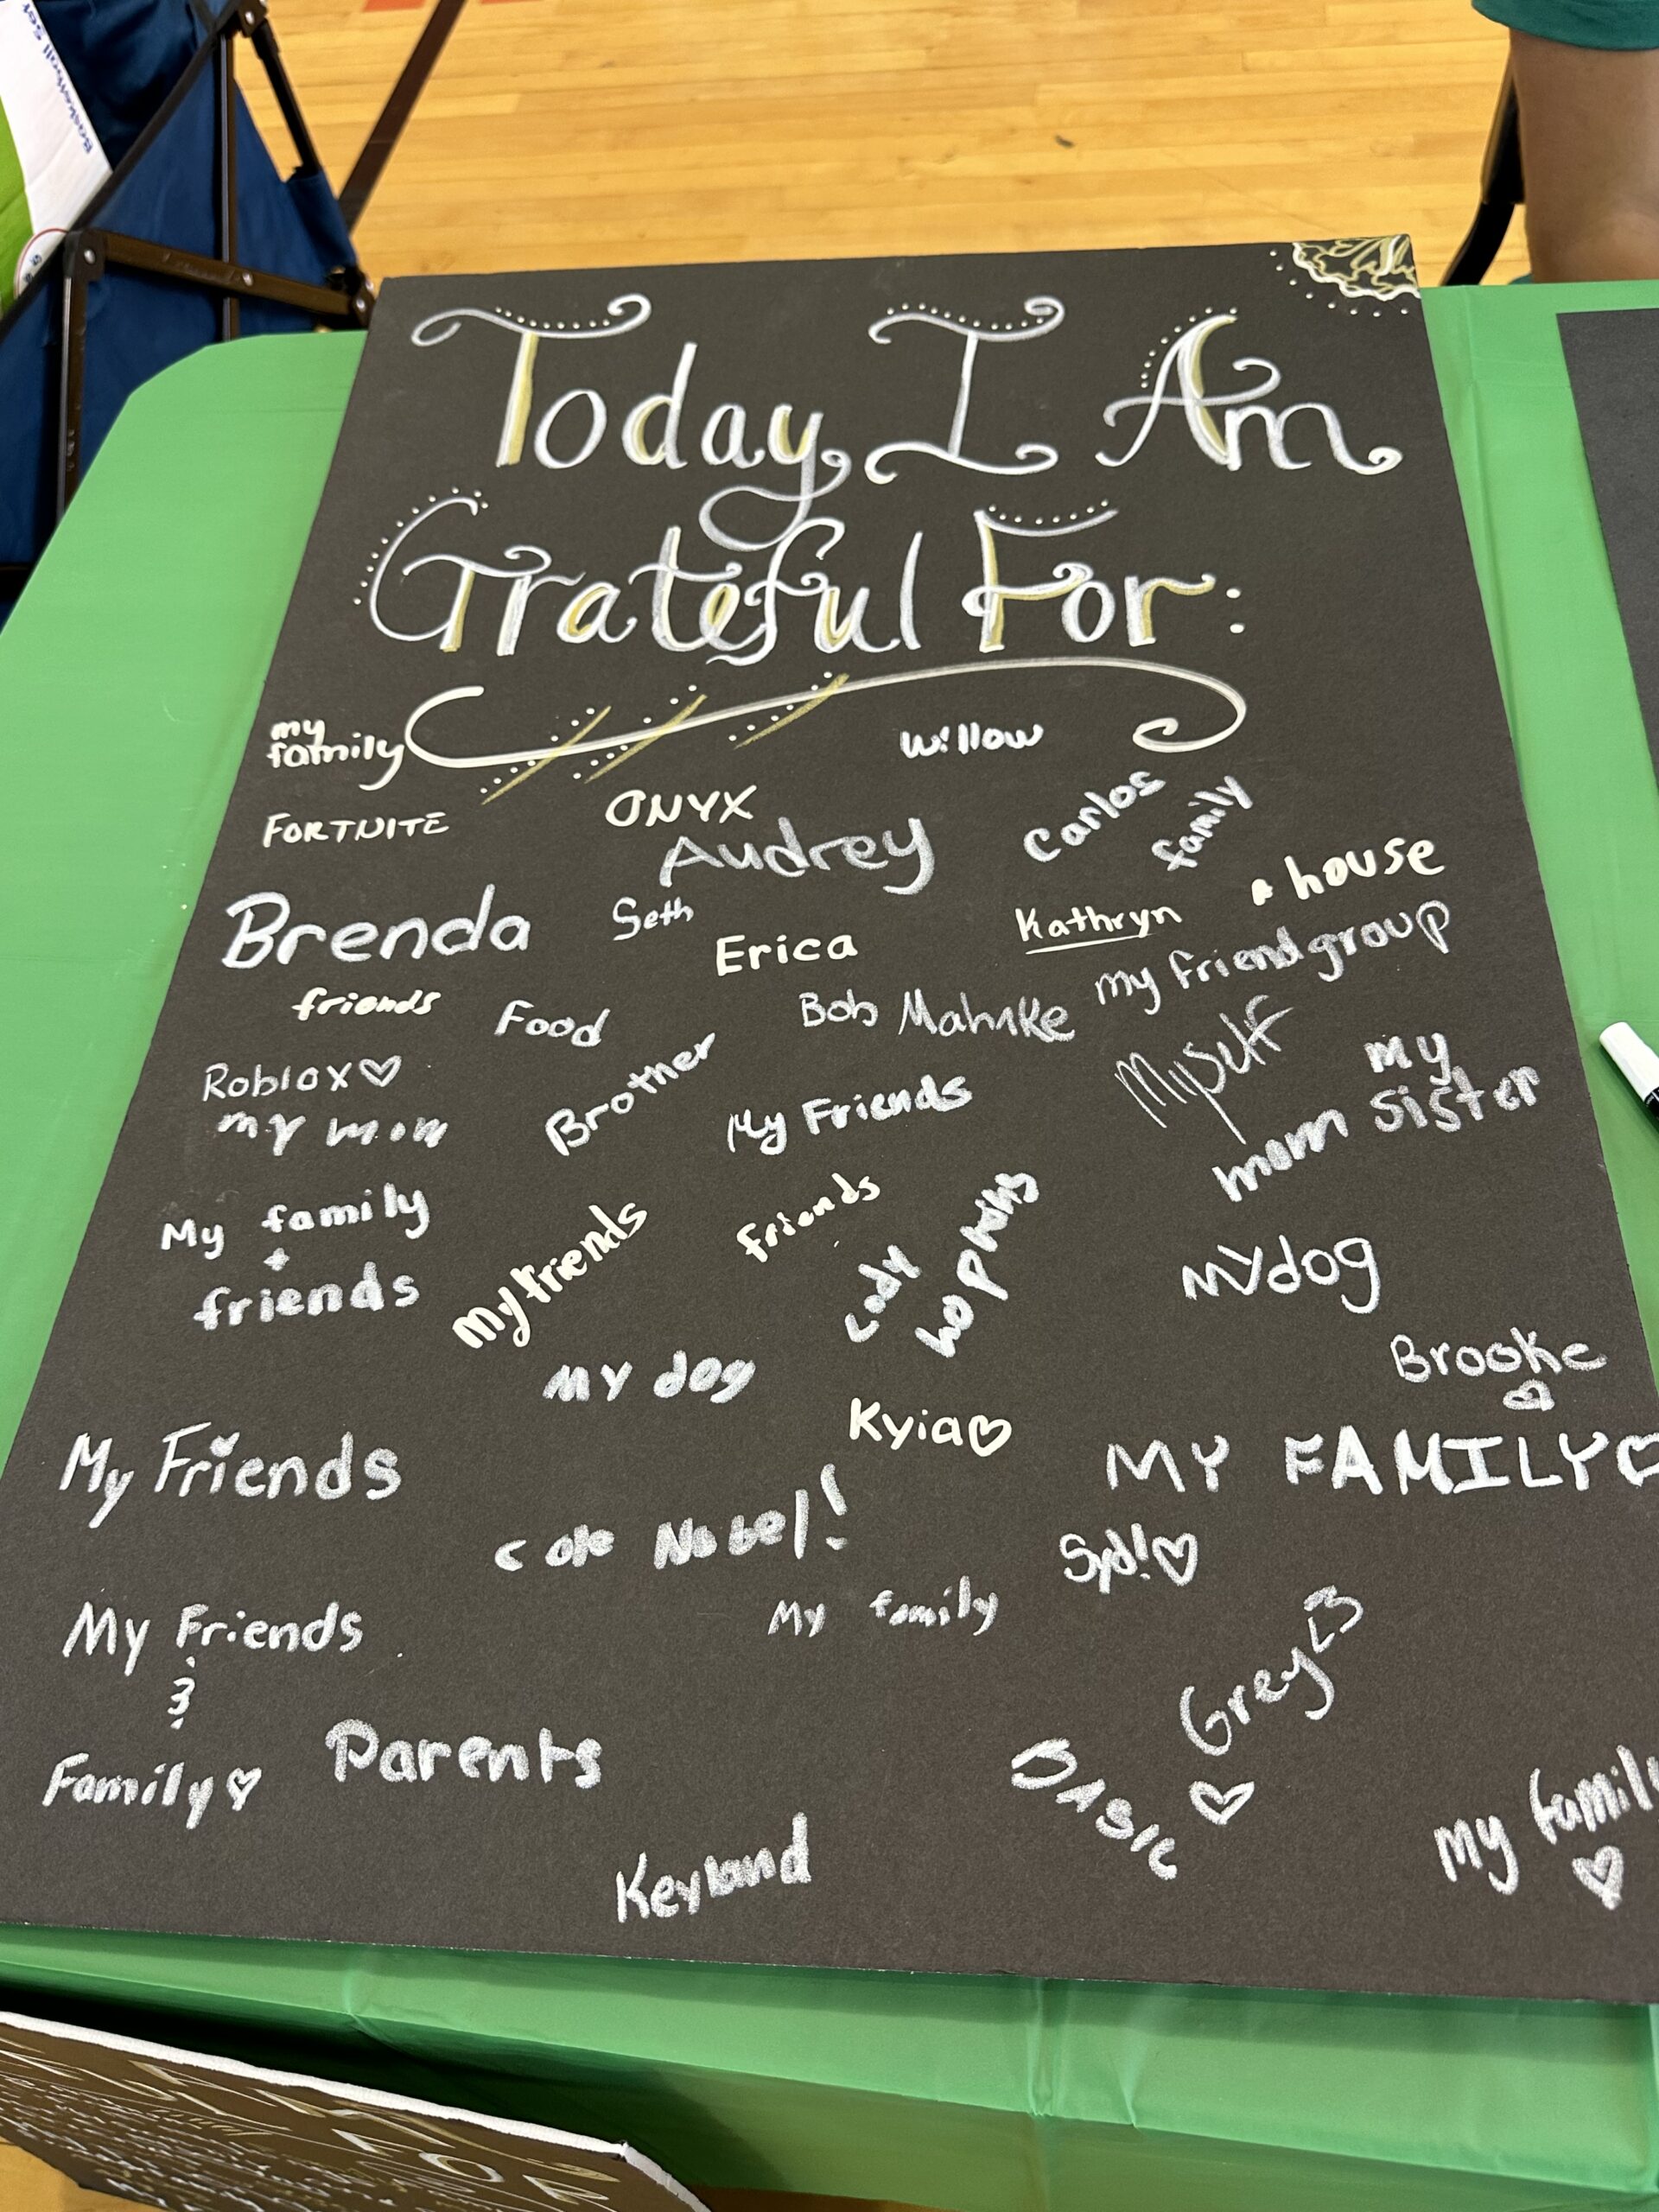 Basketball Set
Today I Am
Grateful For:
my
family
Willow
FORTNITE
ONYX
Audrey
Carlos
family
a house
Brenda
Seth
Erica
Kathryn
my friend group
friends
Food
Bob Mahnke
Myself
my
mom sister
Roblox♡
my mom
Brother
My Friends
My family
+
friends
My friends
Friends
Cody
hopkins
MY dog
MY dog
Brooke
♡
Kyia♡
My Friends
MY FAMILY♡
Cole Nobel!
Syd!♡
My family
My Friends
&
Family♡
Grey<3
♡
Parents
BASIC
My family
♡
Keyland